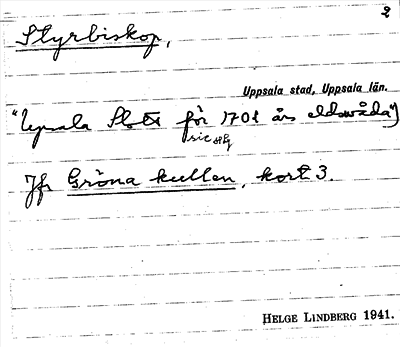 2
Styrbiskop,
Uppsala stad, Uppsala län.
"Upsala Slott för 1702 års eldswåda")
sic
Jfr Gröna kullen, kort 3.
HELGE LINDBERG 1941.